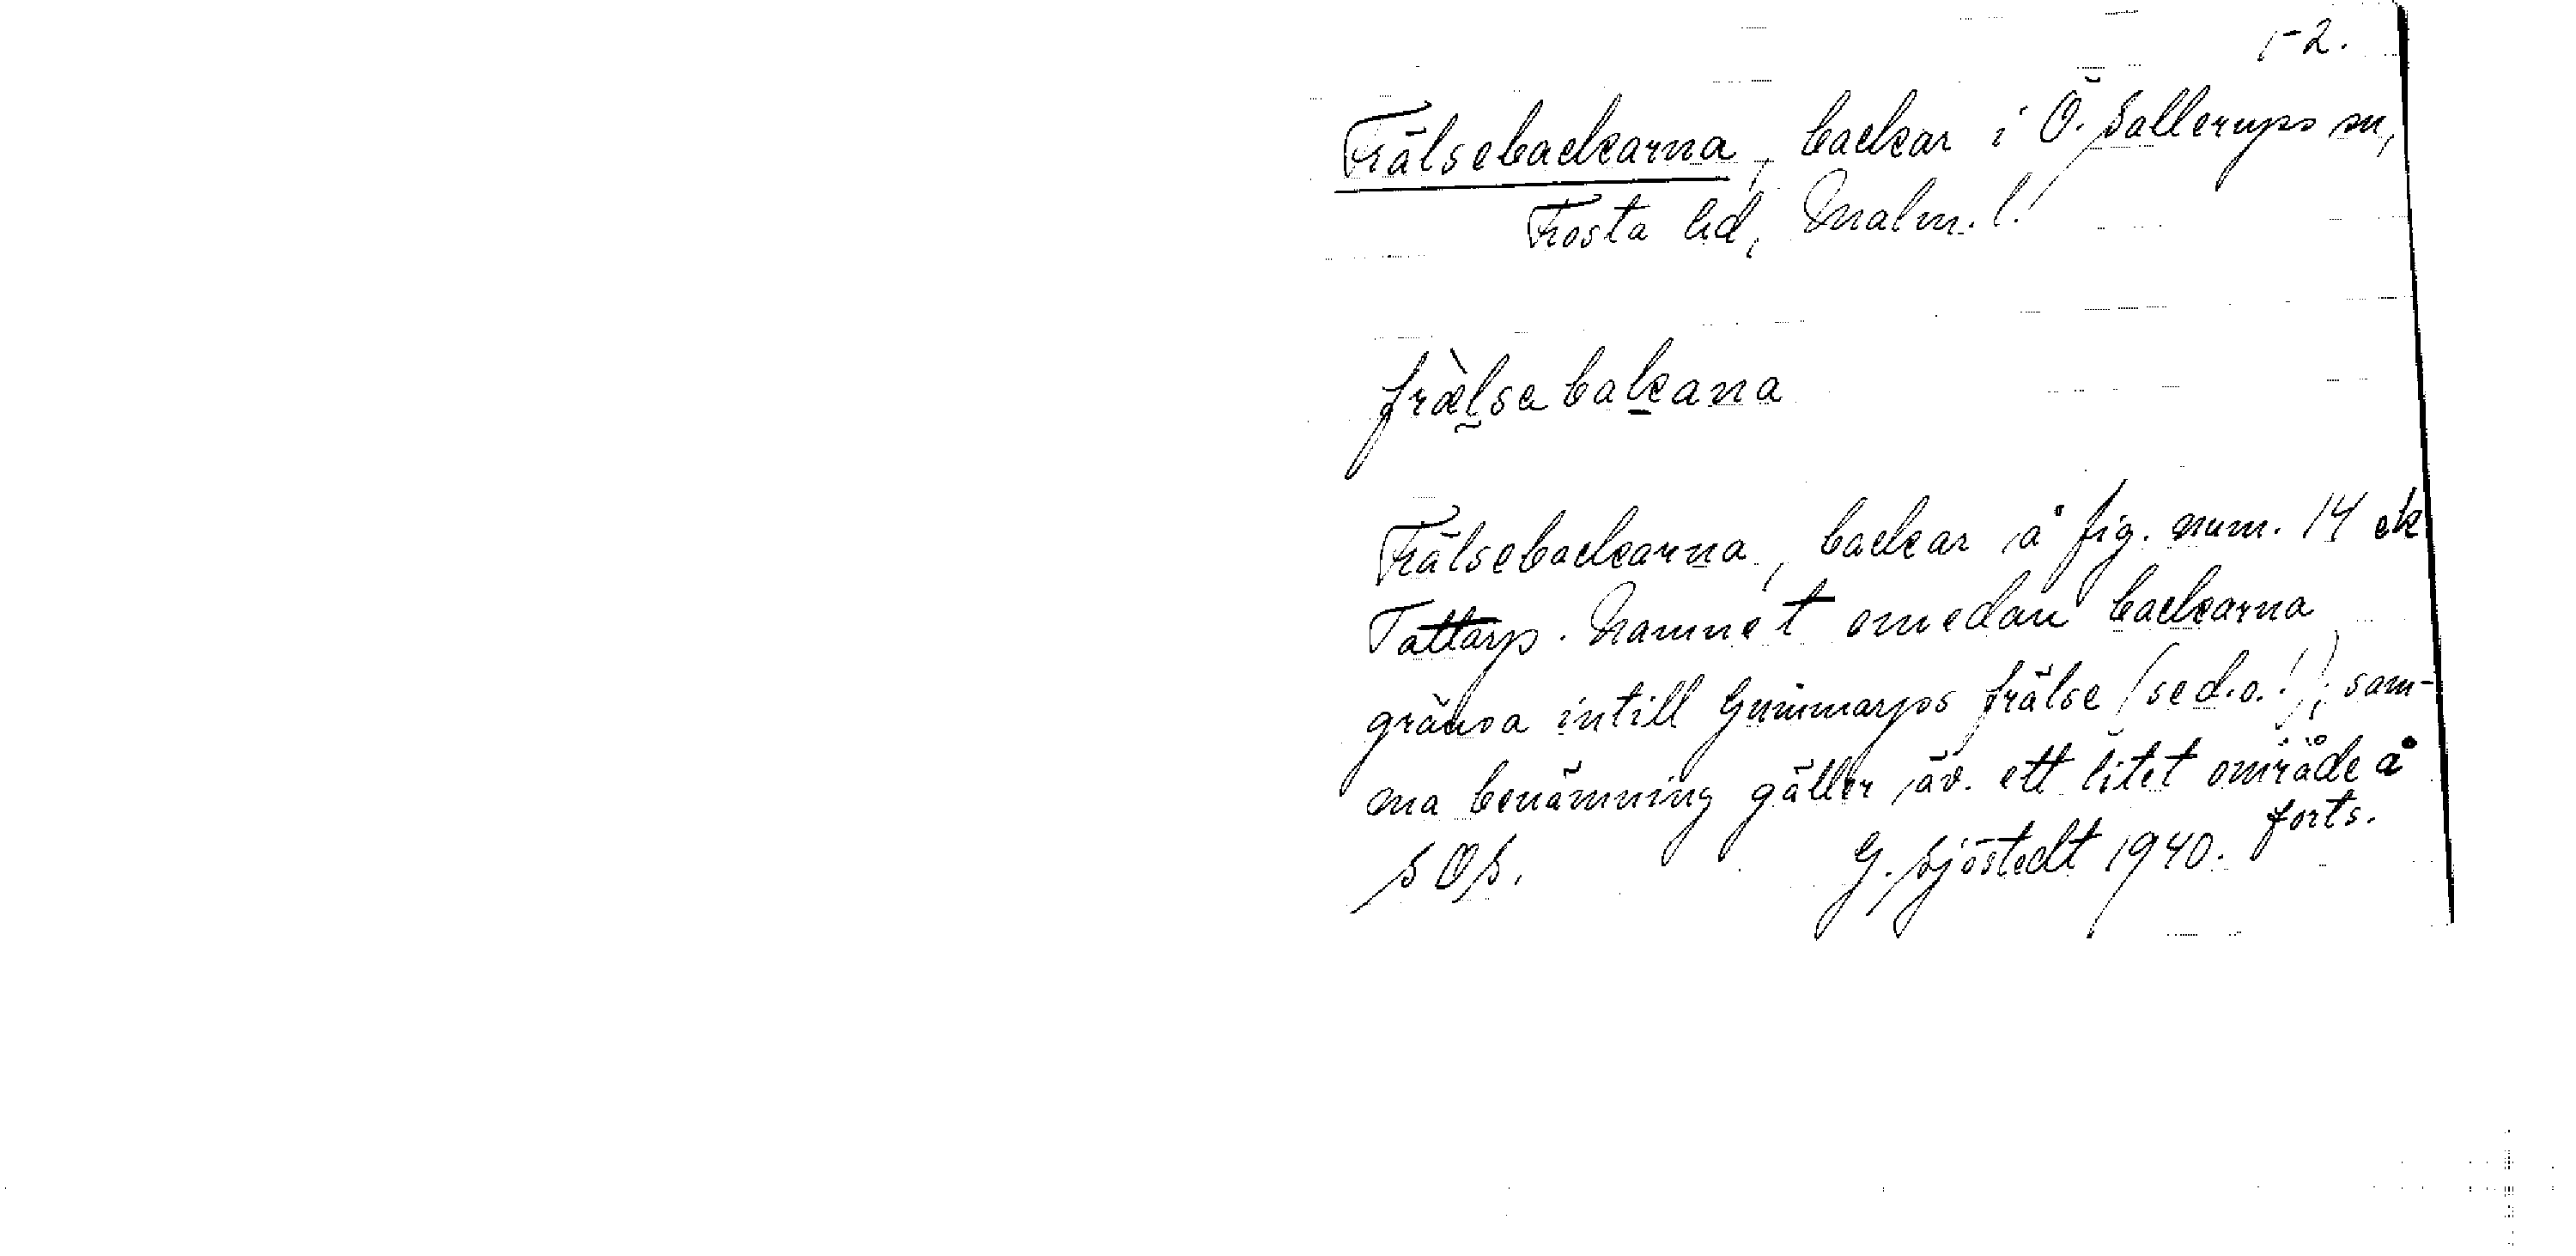 1-2.
Frälsebackarna, backar i Ö. Sallerups sn,
Frosta hd, Malm. l.
frælsabakana
Frälsebackarna, backar å fig. num. 14 ek
Tattarp. Namnet emedan backarna
gränsa intill Gummarps frälse (se d.o.!); sam-
ma benämning gäller äv. ett litet område å
forts.
G. Sjöstedt 1940.